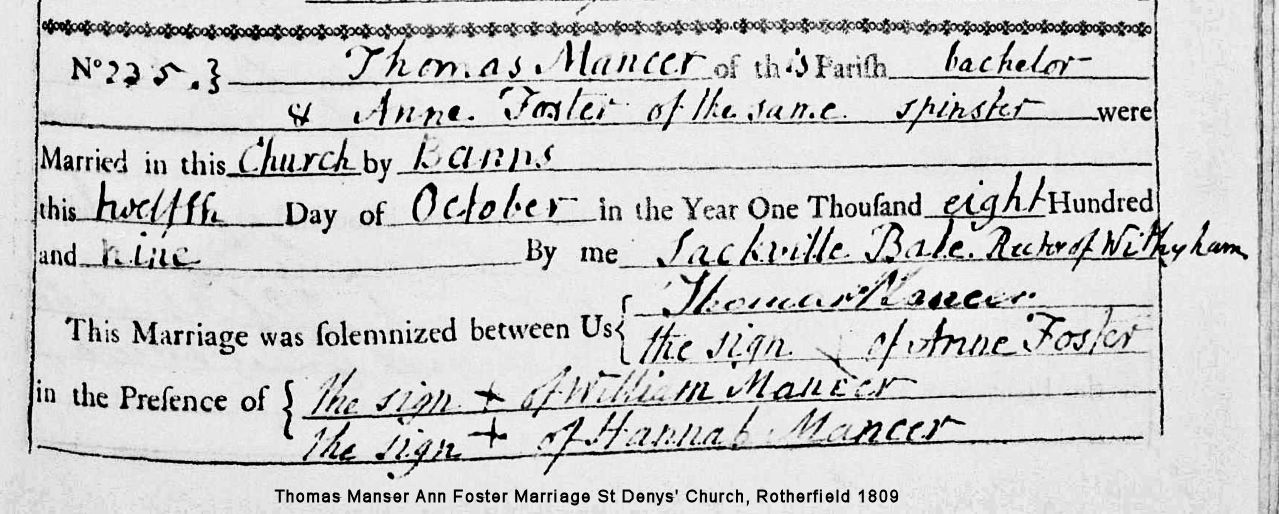 Nº 235. } Thomas Mancer of this Pariſh bachelor
& Anne Foster of the same spinster were
Married in this Church by Banns
this twelfth Day of October in the Year One Thouſand eight Hundred
and nine By me Sackville Bale. Rector of Withyham
This Marriage was ſolemnized between Us { Thomas Mancer
the sign of Anne Foster
in the Preſence of { the sign + of William Mancer
the sign + of Hannah Mancer
Thomas Manser Ann Foster Marriage St Denys' Church, Rotherfield 1809